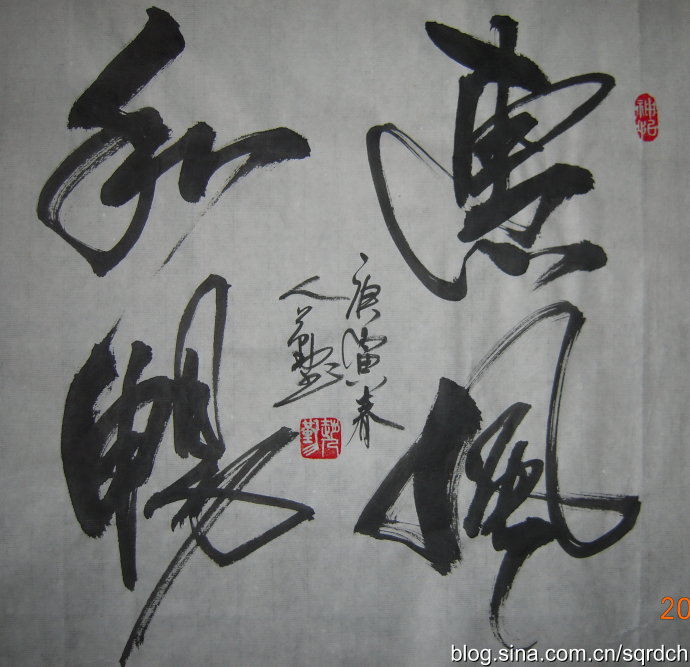 惠風
和暢
庚寅春
人勤
20
blog.sina.com.cn/sqrdch